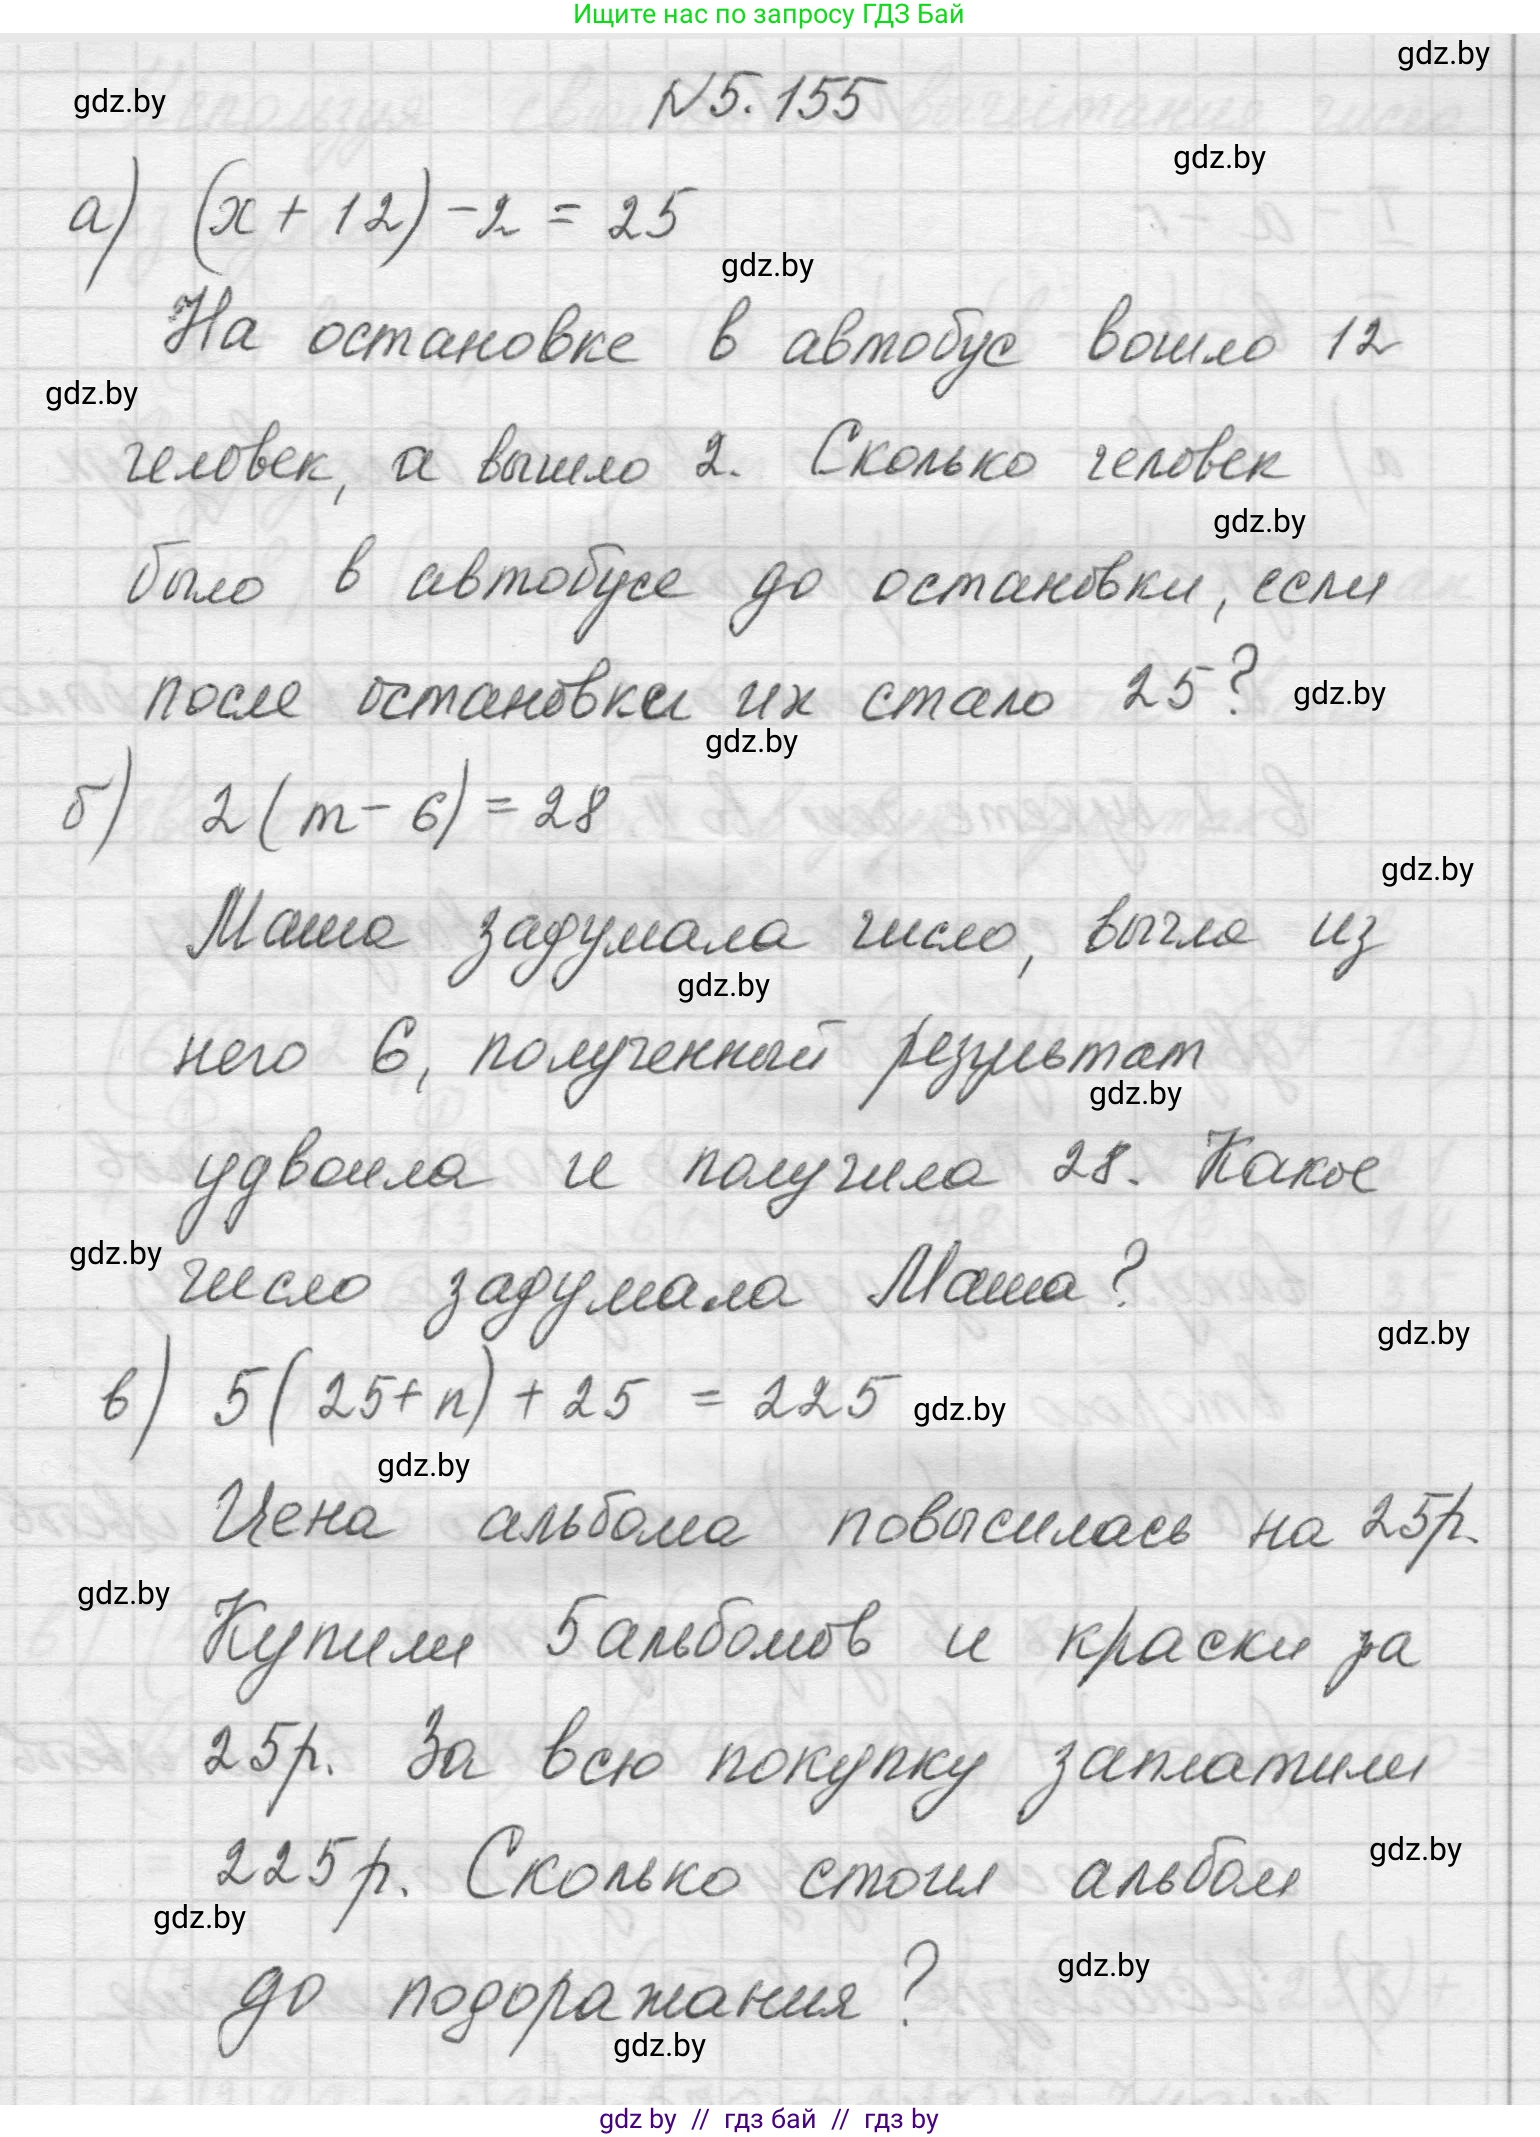 Ищите нас по запросу ГДЗ Бай
gdz.by
gdz.by
N 5.155
gdz.by
а) (x + 12) - 2 = 25
gdz.by
На остановке в автобус вошло 12
gdz.by
человек, а вышло 2. Сколько человек
gdz.by
было в автобусе до остановки, если
после остановки их стало 25?
gdz.by
gdz.by
б) 2(m - 6) = 28
gdz.by
Маша задумала число, вычла из
gdz.by
него 6, полученный результат
gdz.by
удвоила и получила 28. Какое
gdz.by
число задумала Маша?
gdz.by
в) 5(25+n) + 25 = 225
gdz.by
gdz.by
Цена альбома повысилась на 25р.
gdz.by
Купили 5 альбомов и краски за
25р. За всю покупку заплатили
gdz.by
225р. Сколько стоил альбом
gdz.by
gdz.by
до подоражания?
gdz.by
gdz by // гдз бай // гдз by